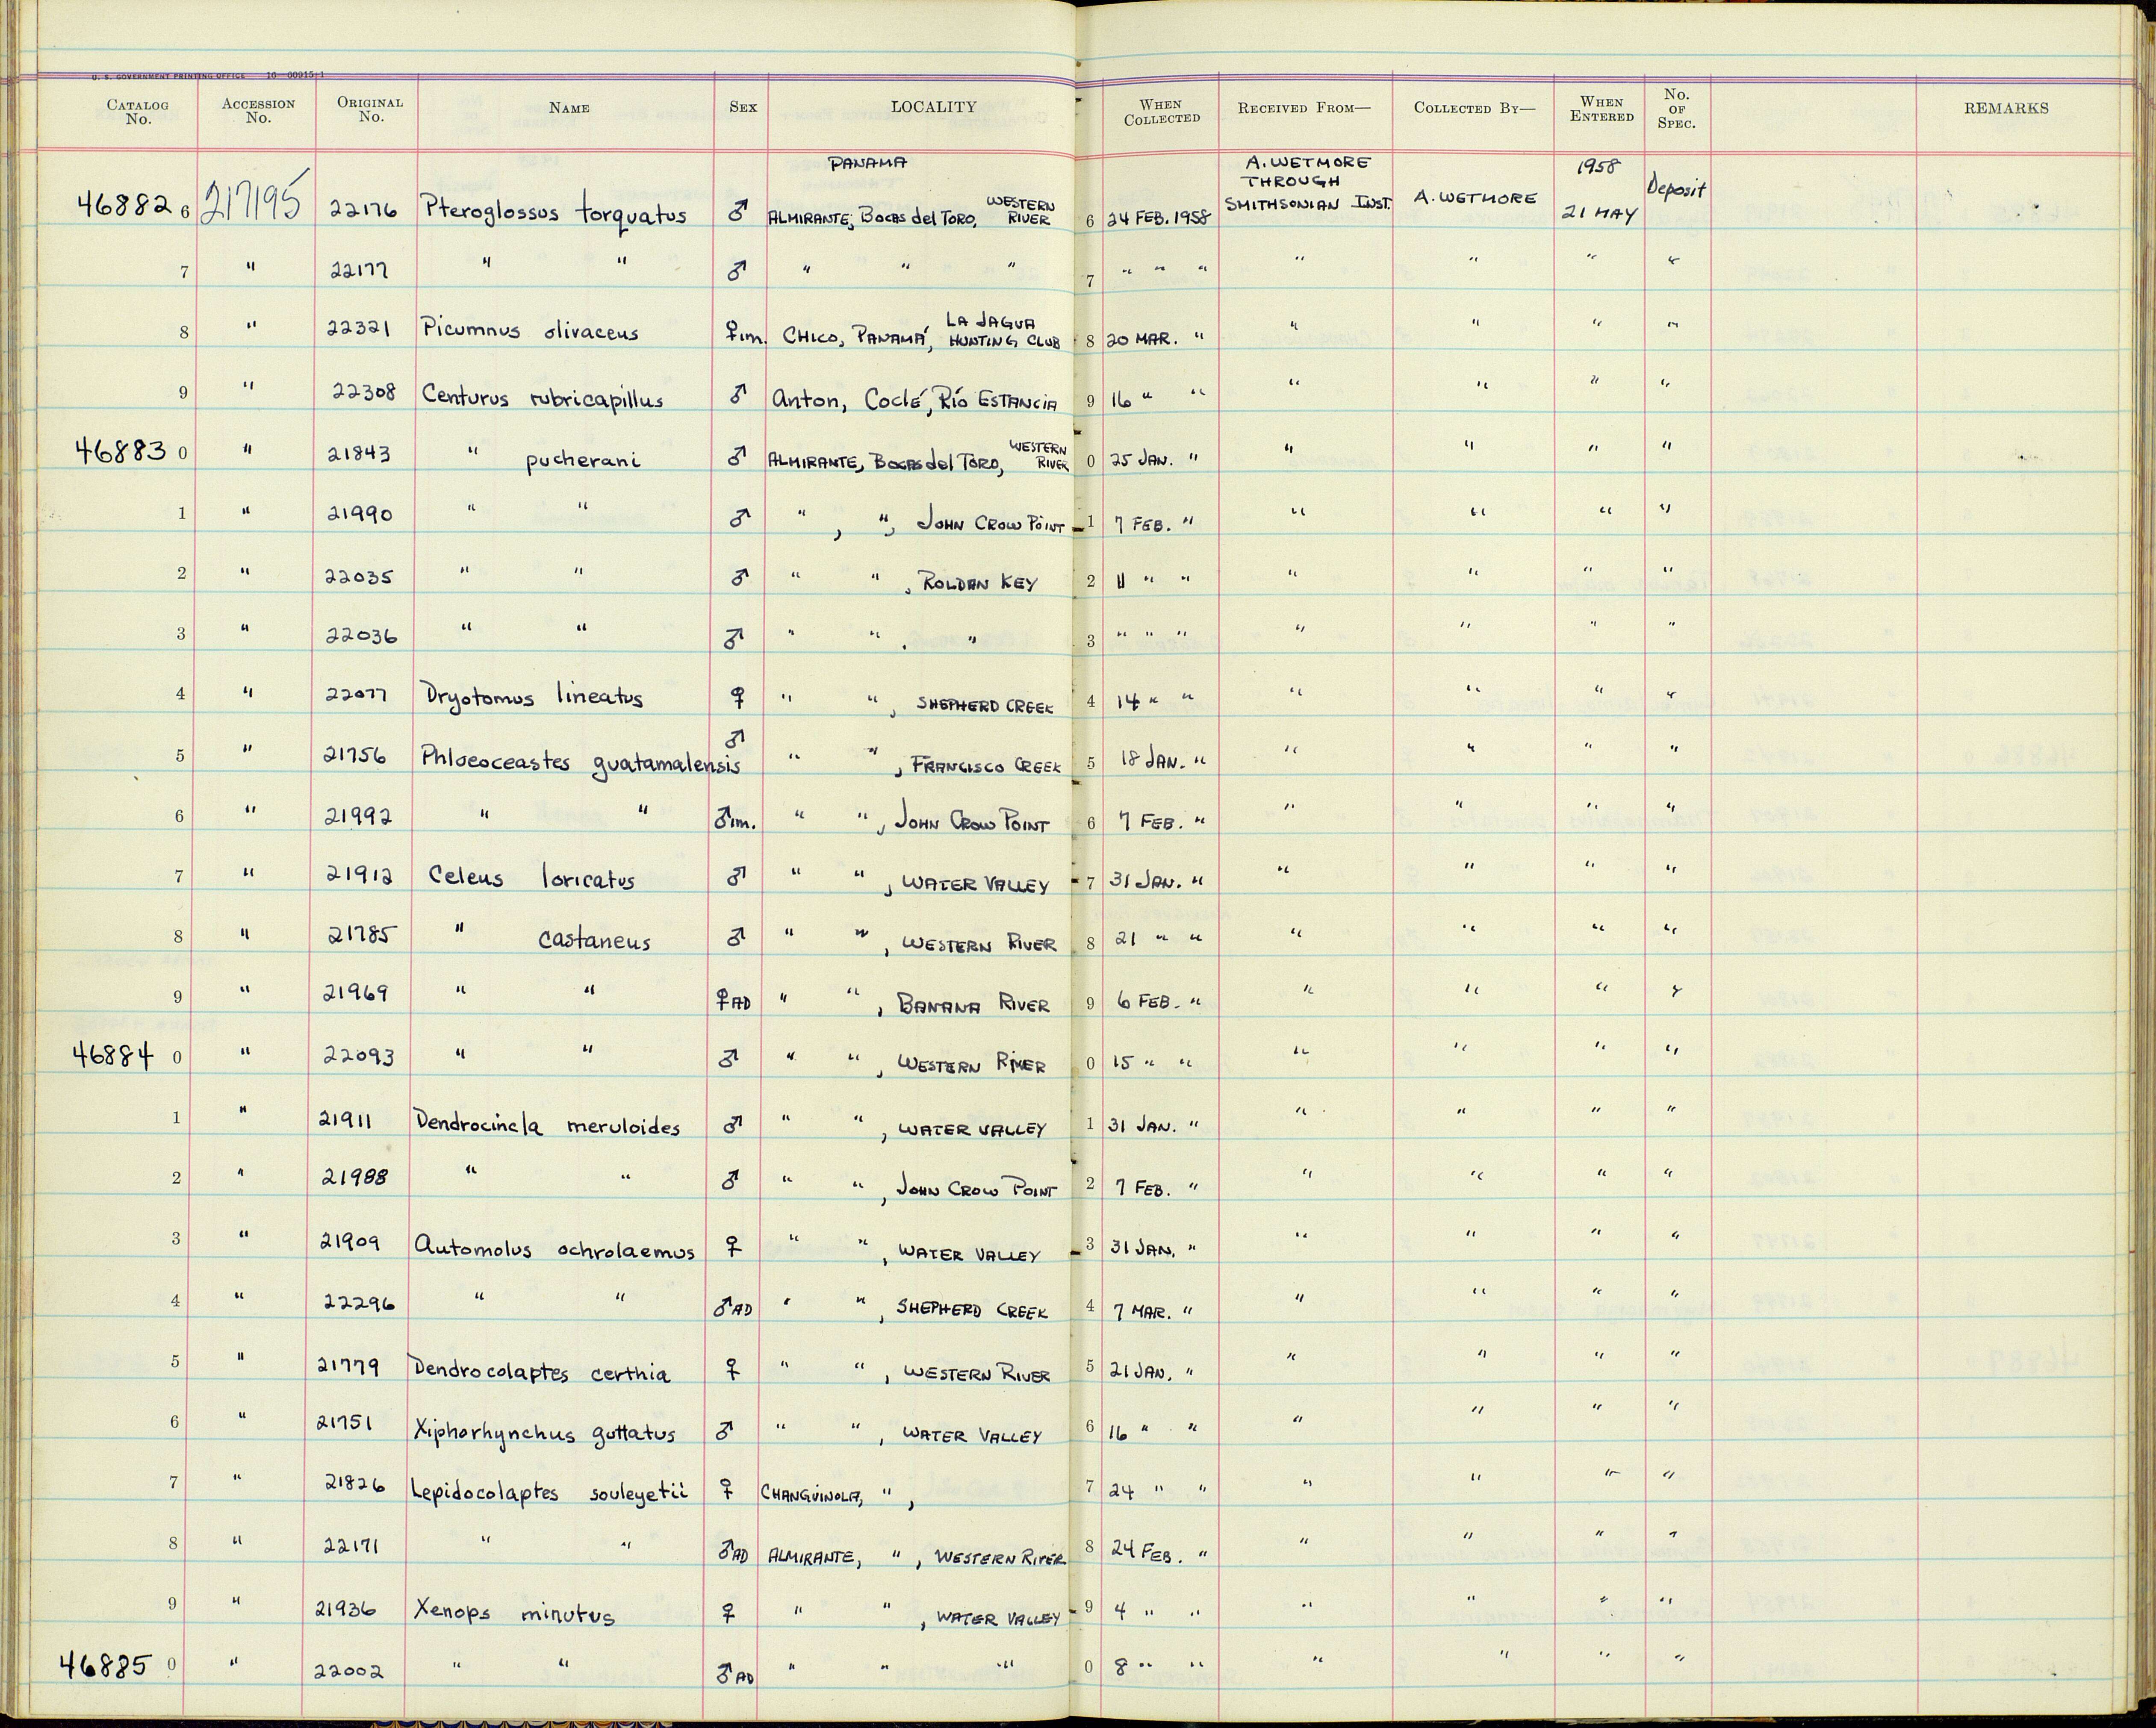 U. S. GOVERNMENT PRINTING OFFICE 16—60915-1
CATALOG No. ACCESSION No. ORIGINAL No. NAME SEX LOCALITY WHEN COLLECTED RECEIVED FROM— COLLECTED BY— WHEN ENTERED No. OF SPEC. REMARKS
PANAMA
46882 6 217195 22176 Pteroglossus torquatus ♂ ALMIRANTE, Bocas del Toro, WESTERN RIVER 6 24 FEB. 1958 A. WETMORE THROUGH SMITHSONIAN INST. A. WETMORE 1958 21 MAY Deposit
7 " 22177 " " ♂ " " " 7 " " " " " " "
8 " 22321 Picumnus olivaceus ♀im. CHICO, PANAMÁ, LA JAGUA HUNTING CLUB 8 20 MAR. " " " " "
9 " 22308 Centurus rubricapillus ♂ Anton, Coclé, Río ESTANCIA 9 16 " " " " " "
46883 0 " 21843 " pucherani ♂ ALMIRANTE, Bocas del Toro, WESTERN RIVER 0 25 JAN. " " " " "
1 " 21990 " " ♂ " , ", JOHN CROW POINT 1 7 FEB. " " " " "
2 " 22035 " " ♂ " " , ROLDAN KEY 2 11 " " " " " "
3 " 22036 " " ♂ " " . " 3 " " " " " " "
4 " 22077 Dryotomus lineatus ♀ " " , SHEPHERD CREEK 4 14 " " " " " "
5 " 21756 Phloeoceastes guatamalensis ♂ " " , FRANCISCO CREEK 5 18 JAN. " " " " "
6 " 21992 " " ♂im. " " , JOHN CROW POINT 6 7 FEB. " " " " "
7 " 21912 Celeus loricatus ♂ " " , WATER VALLEY 7 31 JAN. " " " " "
8 " 21785 " castaneus ♂ " " , WESTERN RIVER 8 21 " " " " " "
9 " 21969 " " ♀AD " " , BANANA RIVER 9 6 FEB. " " " " "
46884 0 " 22093 " " ♂ " " , WESTERN RIVER 0 15 " " " " " "
1 " 21911 Dendrocincla meruloides ♂ " " , WATER VALLEY 1 31 JAN. " " " " "
2 " 21988 " " ♂ " " , JOHN CROW POINT 2 7 FEB. " " " " "
3 " 21909 Automolus ochrolaemus ♀ " " , WATER VALLEY 3 31 JAN. " " " " "
4 " 22296 " " ♂AD " " , SHEPHERD CREEK 4 7 MAR. " " " " "
5 " 21779 Dendrocolaptes certhia ♀ " " , WESTERN RIVER 5 21 JAN. " " " " "
6 " 21751 Xiphorhynchus guttatus ♂ " " , WATER VALLEY 6 16 " " " " " "
7 " 21826 Lepidocolaptes souleyetii ♀ CHANGUINOLA, " , 7 24 " " " " " "
8 " 22171 " " ♂AD ALMIRANTE, " , WESTERN RIVER 8 24 FEB. " " " " "
9 " 21936 Xenops minutus ♀ " " , WATER VALLEY 9 4 " " " " " "
46885 0 " 22002 " " ♂AD " " " 0 8 " " " " " "